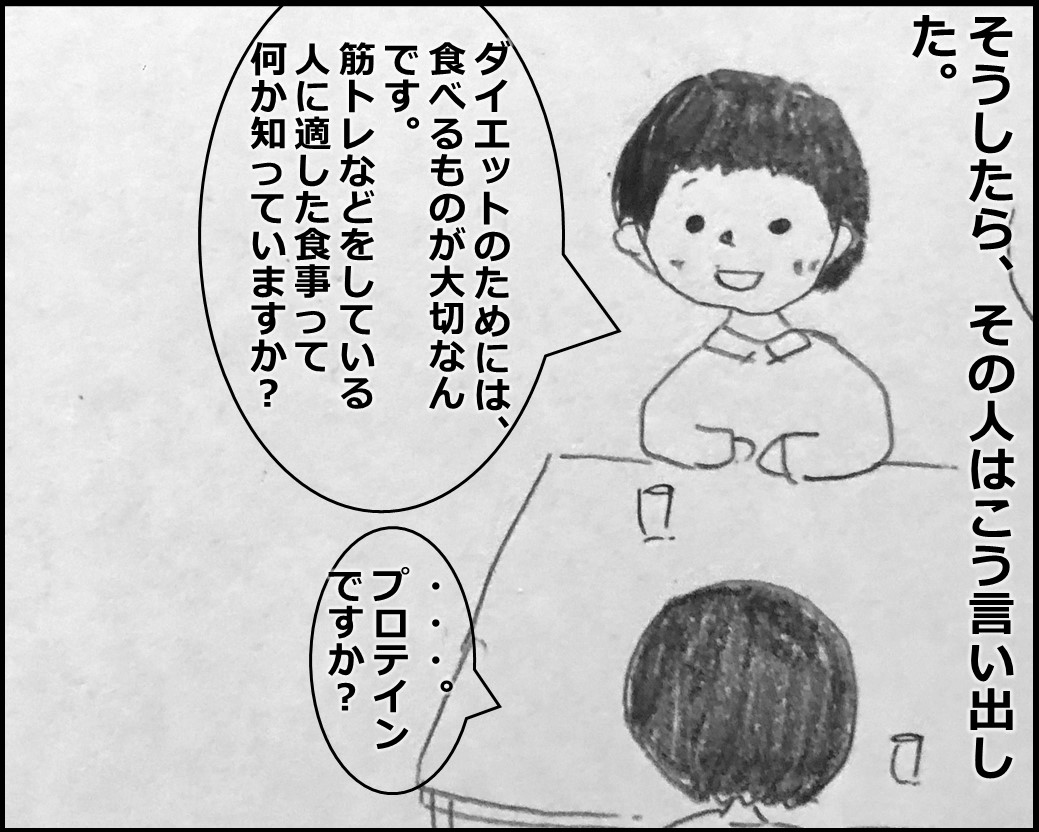 そうしたら、その人はこう言い出し
た。
ダイエットのためには、
食べるものが大切なん
です。
筋トレなどをしている
人に適した食事って
何か知っていますか？
・・・・。
プロテイン
ですか？